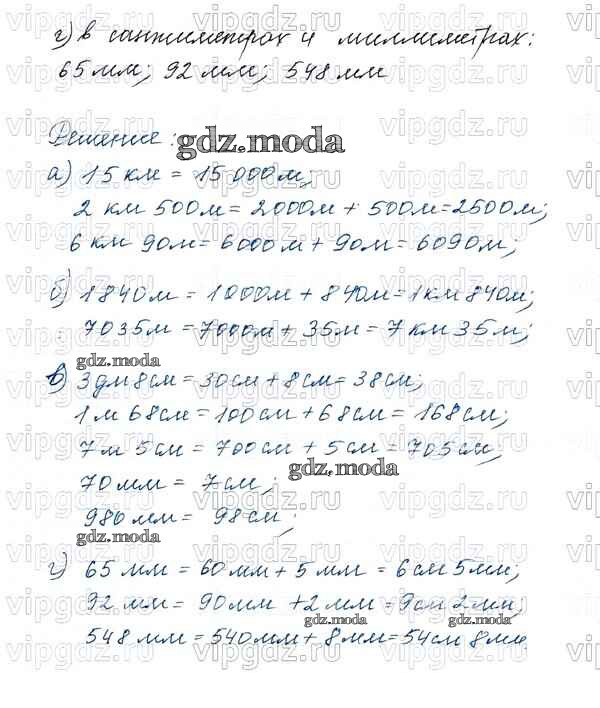 г) в сантиметрах и миллиметрах:
65 мм; 92 мм; 548 мм
Решение:
gdz.moda
а) 15 км = 15 000 м;
2 км 500 м = 2000 м + 500 м = 2500 м;
6 км 90 м = 6000 м + 90 м = 6090 м;
б) 1840 м = 1000 м + 840 м = 1 км 840 м;
7035 м = 7000 м + 35 м = 7 км 35 м;
gdz.moda
в) 3 дм 8 см = 30 см + 8 см = 38 см;
1 м 68 см = 100 см + 68 см = 168 см;
7 м 5 см = 700 см + 5 см = 705 см;
gdz.moda
70 мм = 7 см;
980 мм = 98 см;
gdz.moda
г) 65 мм = 60 мм + 5 мм = 6 см 5 мм;
92 мм = 90 мм + 2 мм = 9 см 2 мм;
gdz.moda gdz.moda
548 мм = 540 мм + 8 мм = 54 см 8 мм
gdz.moda
vipgdz.ru